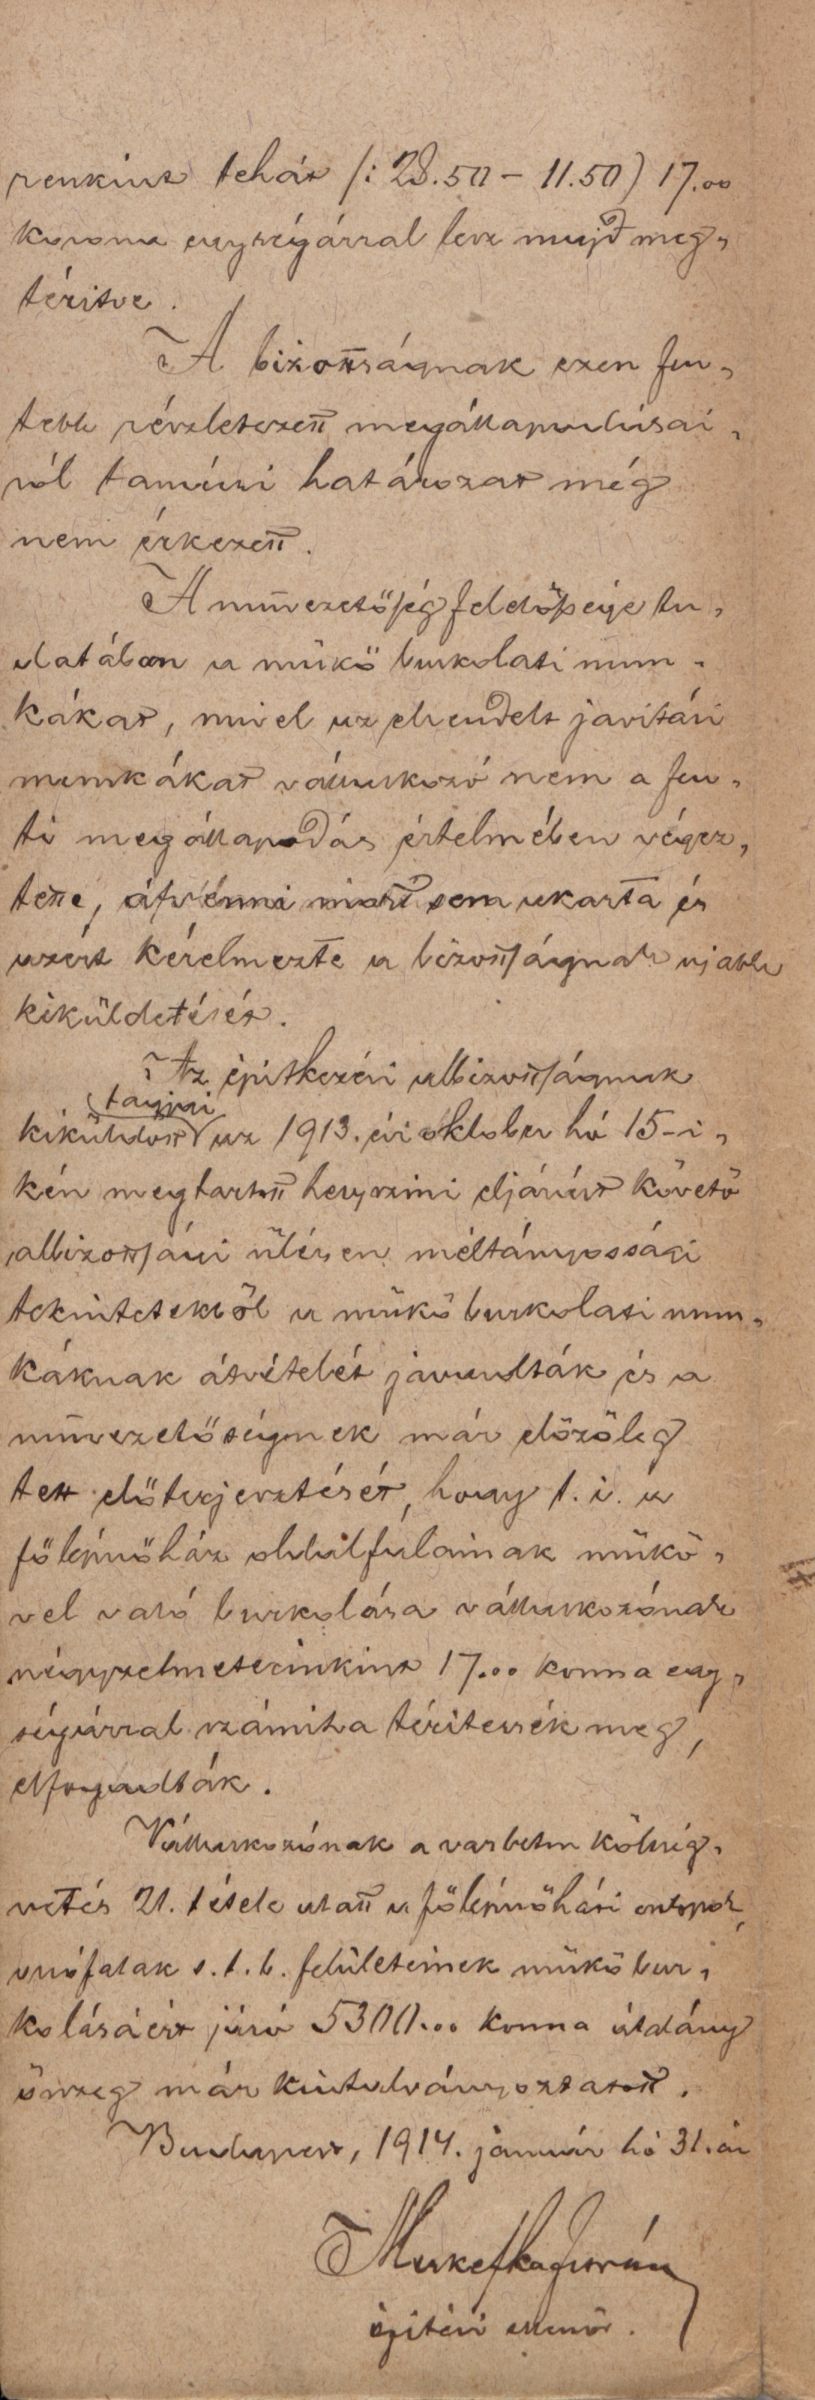 renkint tehát /: 28.50 – 11.50) 17.00
korona egységárral lesz majd meg„
térítve.
A bizottságnak ezen fen„
tebb részletezett megállapodásai„
ról tanácsi határozat még
nem érkezett.
A művezetőség felelőssége tu„
datában a műkő burkolati mun„
kákat, mivel az elrendelt javitási
munkákat vállalkozó nem a fen„
ti megállapodás értelmében végez„
tette, átvenni most sem akarta és
azért kérelmezte a bizottságnak ujabb
kiküldetését.
Az épitkezési albizottságnak
tagjai
kiküldött az 1913. évi október hó 15-i„
kén megtartott helyszini eljárást követő
albizottsági ülésen méltányossági
tekintetekből a műkő burkolati mun„
káknak átvételét javasolták és a
művezetőségnek már előzőleg
tett előterjesztését, hogy t. i. a
főlépcsőház oldalfalainak műkő„
vel való burkolása vállalkozónak
négyzetméterenkint 17.00 korona egy„
ségárral számitva téritessék meg,
elfogadták.
Vállalkozónak a vasbeton költség„
vetés 21. tétele alatt a főlépcsőházi
orsófalak s.t.b. felületeinek műkő bur„
kolásáért járó 5300.00 korona átalány
összeg már kiutalványoztatott.
Budapest, 1914. január hó 31.én
építési ellenőr.